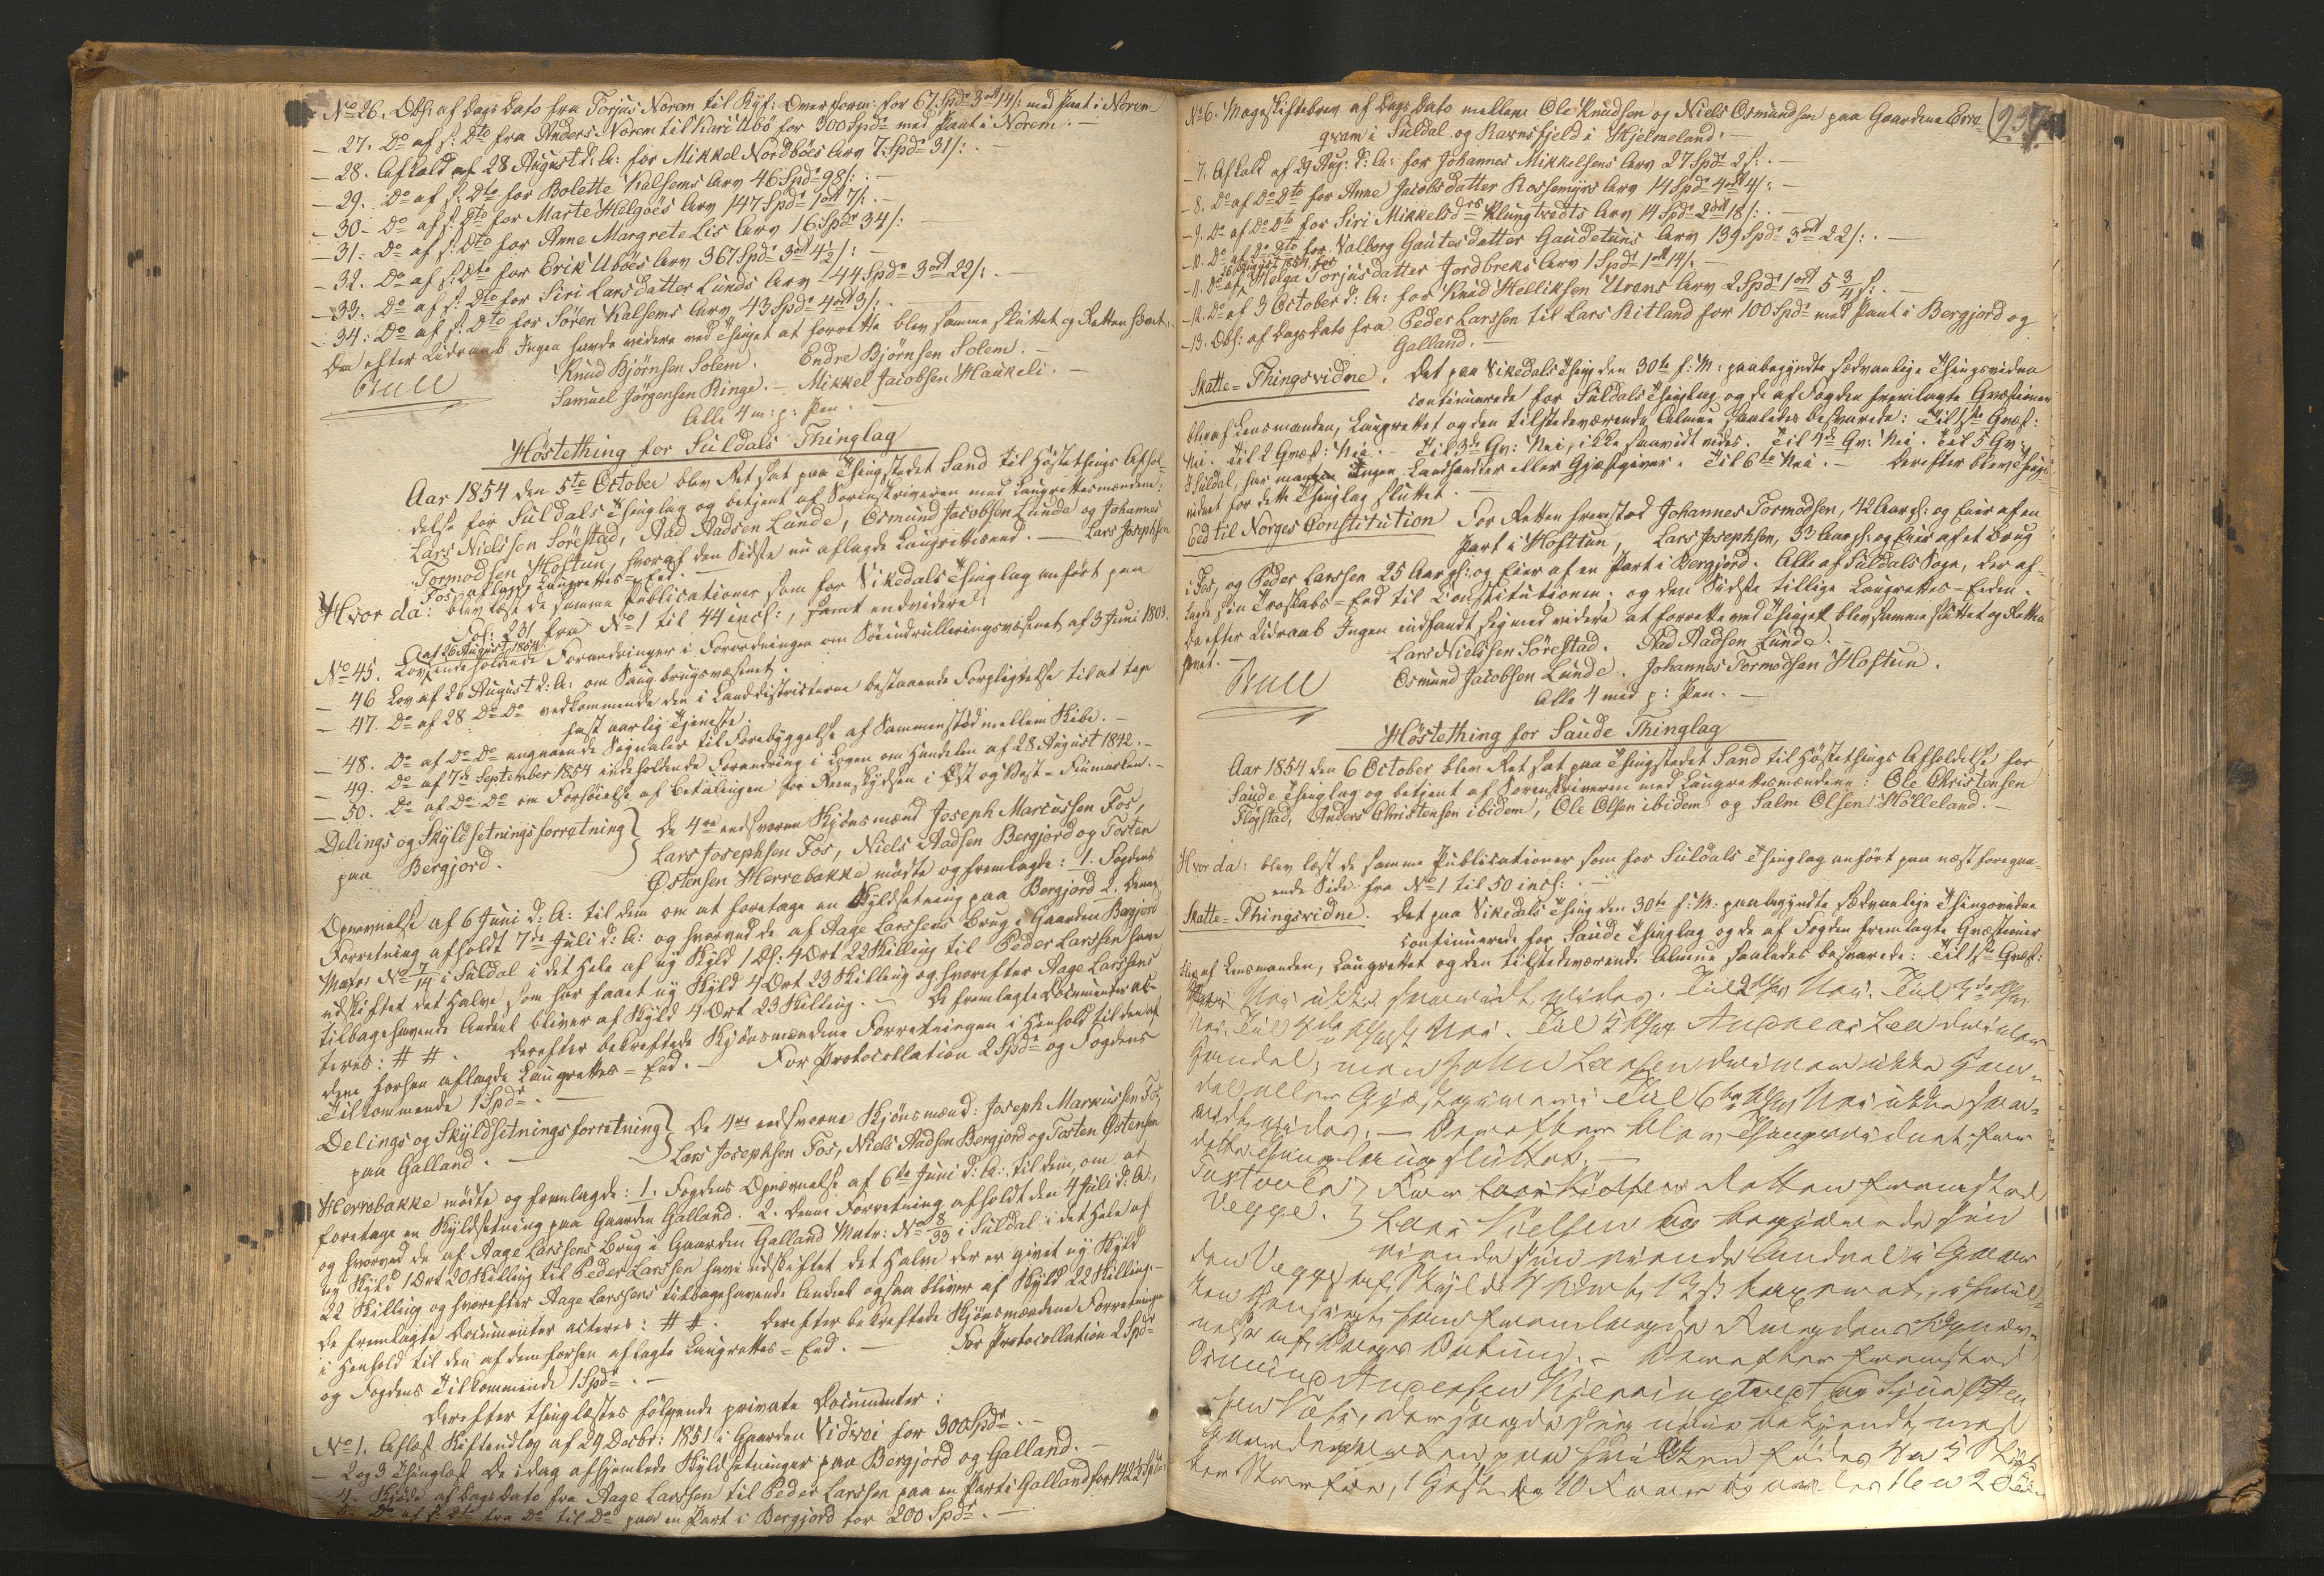 No 26. Obl: af Dags Dato fra Torjus Norem til Kyf: Overform: for 67 Spdr 3 ort 14 s: med Pant i Norem
- 27. Do af s: Dto fra Anders Norem til Kari Ubö for 300 Spdr med Pant i Norem. -
- 28. Afkald af 28 August d: A: for Mikkel Nordböes Arv 7 Spdr 31 s: -
- 29. Do af s: Dto for Bolette Kalsems Arv 46 Spdr 98 s: -
- 30 - Do af s: Dto for Marte Helgöes Arv 147 Spdr 1 ort 7 s. -
- 31. Do af s: Dto for Anne Margrete Lis Arv 16 Spdr 34 s: -
- 32. Do af s: Dto for Erik Uböes Arv 367 Spdr 3 ort 4 1/2 s: -
- 33. Do af s: Dto for Siri Larsdatter Lunds Arv 144 Spdr 3 ort 22 s: -
- 34: Do af s: Dto for Sören Kalsems Arv 43 Spdr 4 ort 3 s: -
Da efter Udraab Ingen havde videre ved Thinget at forrette blev samme sluttet og Retten hævet.
Knud Björnsen Solem. Endre Björnsen Solem. -
Samuel Jörgensen Ringe. - Mikkel Jacobsen Haukeli. -
Alle 4 m: p: Pen. -
Höstething for Suldals Thinglag
Aar 1854 den 5te October blev Ret sat paa Thingstedet Sand til Höstethings Afhol-
delse for Suldals Thinglag og betjent af Sorenskriveren med Laugrettesmændene:
Lars Nielssen Sörestad, Aad Aadsen Lunde, Osmund Jacobsen Lunde og Johannes
Tormodsen Hoftun, hvoraf den Sidste nu aflagde Laugretteseed. - Lars Josephsen
Fos aflagde Laugrettes-Eed.
Hvor da: blev læst de samme Publicationer som for Vikedals Thinglag anfört paa
Fol: 231 fra No 1 til 44 incl:, samt endvidere:
af 26 August 1854
No 45. Lov indeholdende Forandringer i Forordningen om Söindrulleringsvæsenet af 3 Juni 1803.
- 46 Lov af 26 August d: A: om Saugbrugsvæsenet.
- 47. Do af 28 Do Do vedkommende den i Landdistricterne bestaaende Forpligtelse til at tage
fast aarlig Tjeneste.
- 48. Do af Do Do angaaende Signaler til Forebyggelse af Sammenstöd mellem Skibe. -
- 49. Do af 7de September 1854 indeholdende Forandring i Loven om Handelen af 28 August 1842. -
- 50. Do af Do Do om Forhöielse af Betalingen for Reenskydsen i Öst og Vest-Finmarken. -
Delings og Skyldsetningsforretning } De 4re eedsvorne Skjönsmænd Joseph Marcussen Fos,
paa Bergjord. } Lars Josephsen Fos, Niels Aadsen Bergjord og Tosten
Östensen Herrebakke mödte og fremlagde: 1. Fogdens
Opnævnelse af 6 Juni d: A: til dem om at foretage en Skyldsetning paa Bergjord 2. Denne
Forretning afholdt 7de Juli d: A: og hvorved de af Aage Larssens Brug i Gaarden Bergjord
Matr: No 7/14 i Suldal i det Hele af ny Skyld 1 Dl: 4 Ort 22 Skilling til Peder Larssen have
udskiftet det Halve som har faaet ny Skyld 4 Ort 23 Skilling og hvorefter Aage Larssens
tilbagehavende Andeel bliver af Skyld 4 Ort 23 Skilling. - De fremlagte Documenter ac-
teres: # #. Derefter bekræftede Skjönsmændene Forretningen i Henhold til den af
dem forhen aflagde Laugrettes-Eed. - For Protocollation 2 Spdr og Fogdens
Tilkommende 1 Spdr. -
Delings og Skyldsetningsforretning } De 4re eedsvorne Skjönsmænd: Joseph Markussen Fos,
paa Galland. } Lars Josephsen Fos, Niels Aadsen Bergjord og Tosten Östensen
Herrebakke mödte og fremlagde: 1. Fogdens Opnævnelse af 6te Juni d: A: til dem om at
foretage en Skyldsetning paa Gaarden Galland. 2. Denne Forretning afholdt den 4 Juli d: A:,
og hvorved de af Aage Larssens Brug i Gaarden Galland Matr: No 8/33 i Suldal i det Hele af
ny Skyld 1 Ort 20 Skilling til Peder Larssen have udskiftet det Halve der er givet ny Skyld
22 Skilling og hvorefter Aage Larssens tilbagehavende Andeel ogsaa bliver af Skyld 22 Skilling. -
De fremlagte Documenter acteres: # #. Derefter bekræftede Skjönsmændene Forretningen
i Henhold til den af dem forhen aflagte Laugrettes-Eed. - For Protocollation 2 Spdr
og Fogdens Tilkommende 1 Spdr. -
Derefter thinglæstes fölgende private Documenter:
No 1. Aflæst Skiftendlæg af 29 Decbr: 1851 i Gaarden Vidvei for 300 Spdr. -
- 2 og 3 Thinglæst de idag afhjemlede Skyldsetninger paa Bergjord og Galland. -
- 4. Skjöde af Dags Dato fra Aage Larssen til Peder Larssen paa en Part i Galland for 142 Spdr
- 5. Do af s: Dto fra Do til Do paa en Part i Bergjord for 200 Spdr. -
237
No 6. Mageskiftebrev af Dags Dato mellem Ole Knudsen og Niels Osmundsen paa Gaardene Erre-
qvam i Suldal og Ravnsfjeld i Hjelmeland. -
- 7. Afkald af 29 Aug: d: A: for Johannes Mikkelsens Arv 27 Spdr 2 s: -
- 8. Do af Do Dto for Anne Jacobsdatter Rossemyrs Arv 14 Spdr 4 ort 4 s: -
- 9. Do af Do Dto for Siri Mikkelsdrs Klungtvedts Arv 14 Spdr 2 ort 18 s: -
- 10. Do af Do Dto for Valborg Gautesdatter Gaudetuns Arv 139 Spdr 3 ort 22 s: -
26 August 1854 for
- 11. Do af Helga Torjusdatter Jordbreks Arv 1 Spdr 1 ort 14 s. -
- 12. Do af 3 October d: A: for Knud Helliksen Urans Arv 2 Spdr 1 ort 5 3/4 s: -
- 13. Obl: af Dags Dato fra Peder Larssen til Lars Ritland for 100 Spdr med Pant i Bergjord og
Galland. -
Skatte-Thingsvidne. Det paa Vikedals Thing den 30te f: M: paabegyndte sædvanlige Thingsvidne
continuerede for Suldals Thinglag og de af Fogden fremlagte Qvæstioner
blev af Lensmanden, Laugrettet og den tilstedeværende Almue saaledes besvarede: Til 1ste Qvæst:
Nei. Til 2 Qvæst: Nei. - Til 3die Qv: Nei, ikke saavidt vides. Til 4de Qv: Nei. Til 5 Qv:
I Suldal, har Ingen Landhandler eller Gjæstgiver. Til 6te Nei. - Derefter blev Things-
vidnet for dette Thinglag sluttet. -
Eed til Norges Constitution For Retten fremstod Johannes Tormodsen, 42 Aar gl: og Eier af en
Part i Hoftun, Lars Josephsen, 33 Aar gl: og Eier af et Brug
i Fos, og Peder Larssen 25 Aar gl: og Eier af en Part i Bergjord. Alle af Suldals Sogn, der af-
lagde sin Troskabs-Eed til Constitutionen; og den Sidste tillige Laugrettes-Eeden.
Da efter Udraab Ingen indfandt sig med videre at forrette ved Thinget blev samme sluttet og Retten
hævet.
Lars Nielssen Sörestad. Aad Aadsen Lunde. -
Osmund Jacobsen Lunde. Johannes Tormodsen Hoftun.
Alle 4 med p: Pen. -
Höstething for Saude Thinglag
Aar 1854 den 6 October blev Ret sat paa Thingstedet Sand til Höstethings Afholdelse for
Saude Thinglag og betjent af Sorenskriveren med Laugrettesmændene: Ole Christensen
Flögstad, Anders Christensen ibidem, Ole Olsen ibidem og Salm Olsen Hölleland. -
Hvor da: blev læst de samme Publicationer som for Suldals Thinglag anfört paa næst foregaa-
ende Side fra No 1 til 50 incl: -
Skatte-Thingsvidne. Det paa Vikedals Thing den 30te f: M: paabegyndte sædvanlige Thingsvidne
continuerede for Saude Thinglag og de af Fogden fremlagte Qvæstioner
blev af Lensmanden, Laugrettet og den tilstedeværende Almue saaledes besvarede: Til 1ste Qvæst:
Nei ikke saavidt vides. Til 2 Qv: Nei. Til 3die Qv:
Nei. Til 4de Qvæst Nei. Til 5 Qvæ Andreas Lea driver
Handel, men John Larsen driver ikke Han-
del eller Gjæstgiveri Til 6te Qv: Nei ikke saa-
vidt vides. - Derefter blev Thingsvidnet for
dette Thinglaug sluttet. -
Taxt over } For Retten fremstod
Vegge. } Lars Nielsen og begjærede sin
eiende Andeel i Gaar-
den Vegge af Skyld 4 Ort 13 s taxeret, i hvil-
ken Henseende han fremlagde Fogdens Opnæv-
nelse af Dags Datum. - Derefter fremstod
Osmund Andersen Kjerringtvedt og Sjur Östen-
sen, der sagde sig nöie bekjendt med
Gaardeparten paa hvilken födes 4 a 5
1 Hest og 10 Faar og avles 16 a 20 Tdr